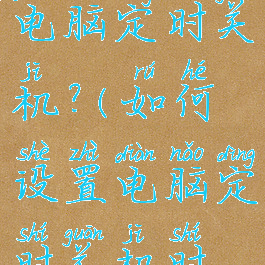 电脑定时关
jī rú hé
机?(如何
shè zhì diàn nǎo dìng
设置电脑定
shí guān jī shí
时关机时